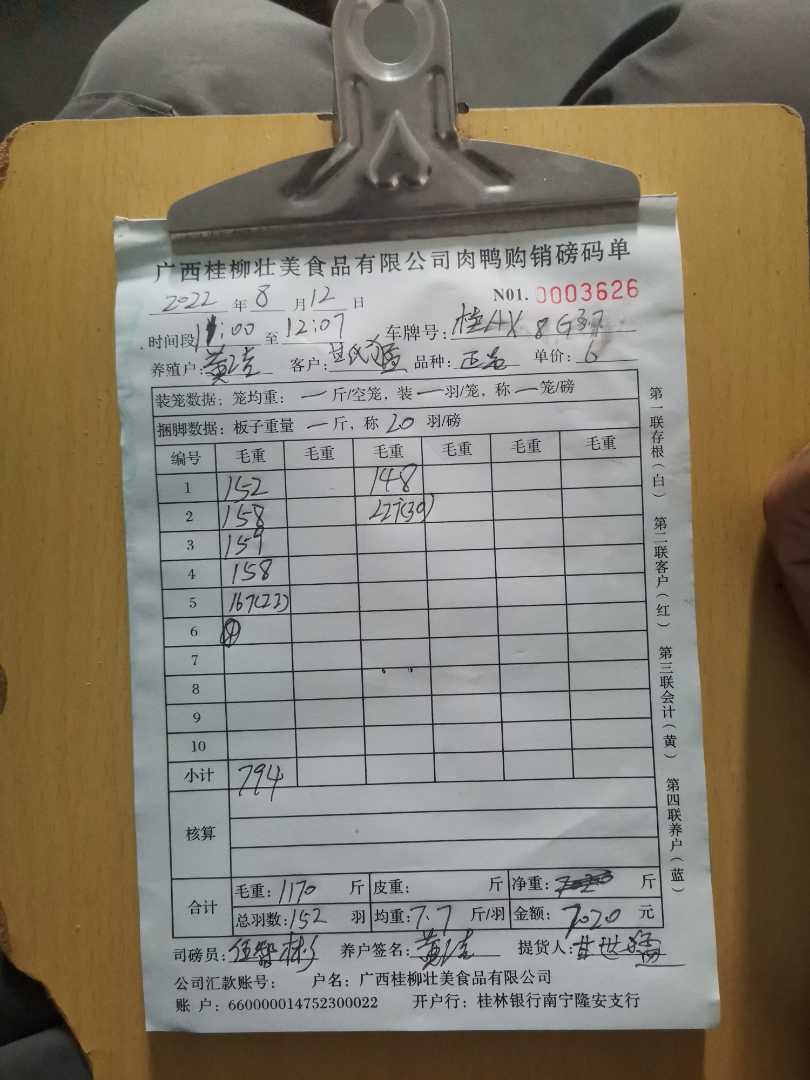 广西桂柳壮美食品有限公司肉鸭购销磅码单
2022 年 8 月 12 日 N01. 0003626
时间段 11:00 至 12:07 车牌号: 桂AX 8G37
养殖户: 黄 客户: 甘氏 品种: 正品 单价: 6
装笼数据: 笼均重: 一 斤/空笼, 装 一 羽/笼, 称 一 笼/磅
捆脚数据: 板子重量 一 斤, 称 20 羽/磅
编号 毛重 毛重 毛重 毛重 毛重 毛重
1 152 148
2 158 227(30)
3 159
4 158
5 167(22)
6
7
8
9
10
小计 794
核算
合计 毛重: 1170 斤 皮重: 斤 净重: 斤
总羽数: 152 羽 均重: 7.7 斤/羽 金额: 7020 元
司磅员: 伍 彬 养户签名: 黄 提货人: 甘世猛
公司汇款账号: 户名: 广西桂柳壮美食品有限公司
账 户: 660000014752300022 开户行: 桂林银行南宁隆安支行
第一联存根(白) 第二联客户(红) 第三联会计(黄) 第四联养户(蓝)